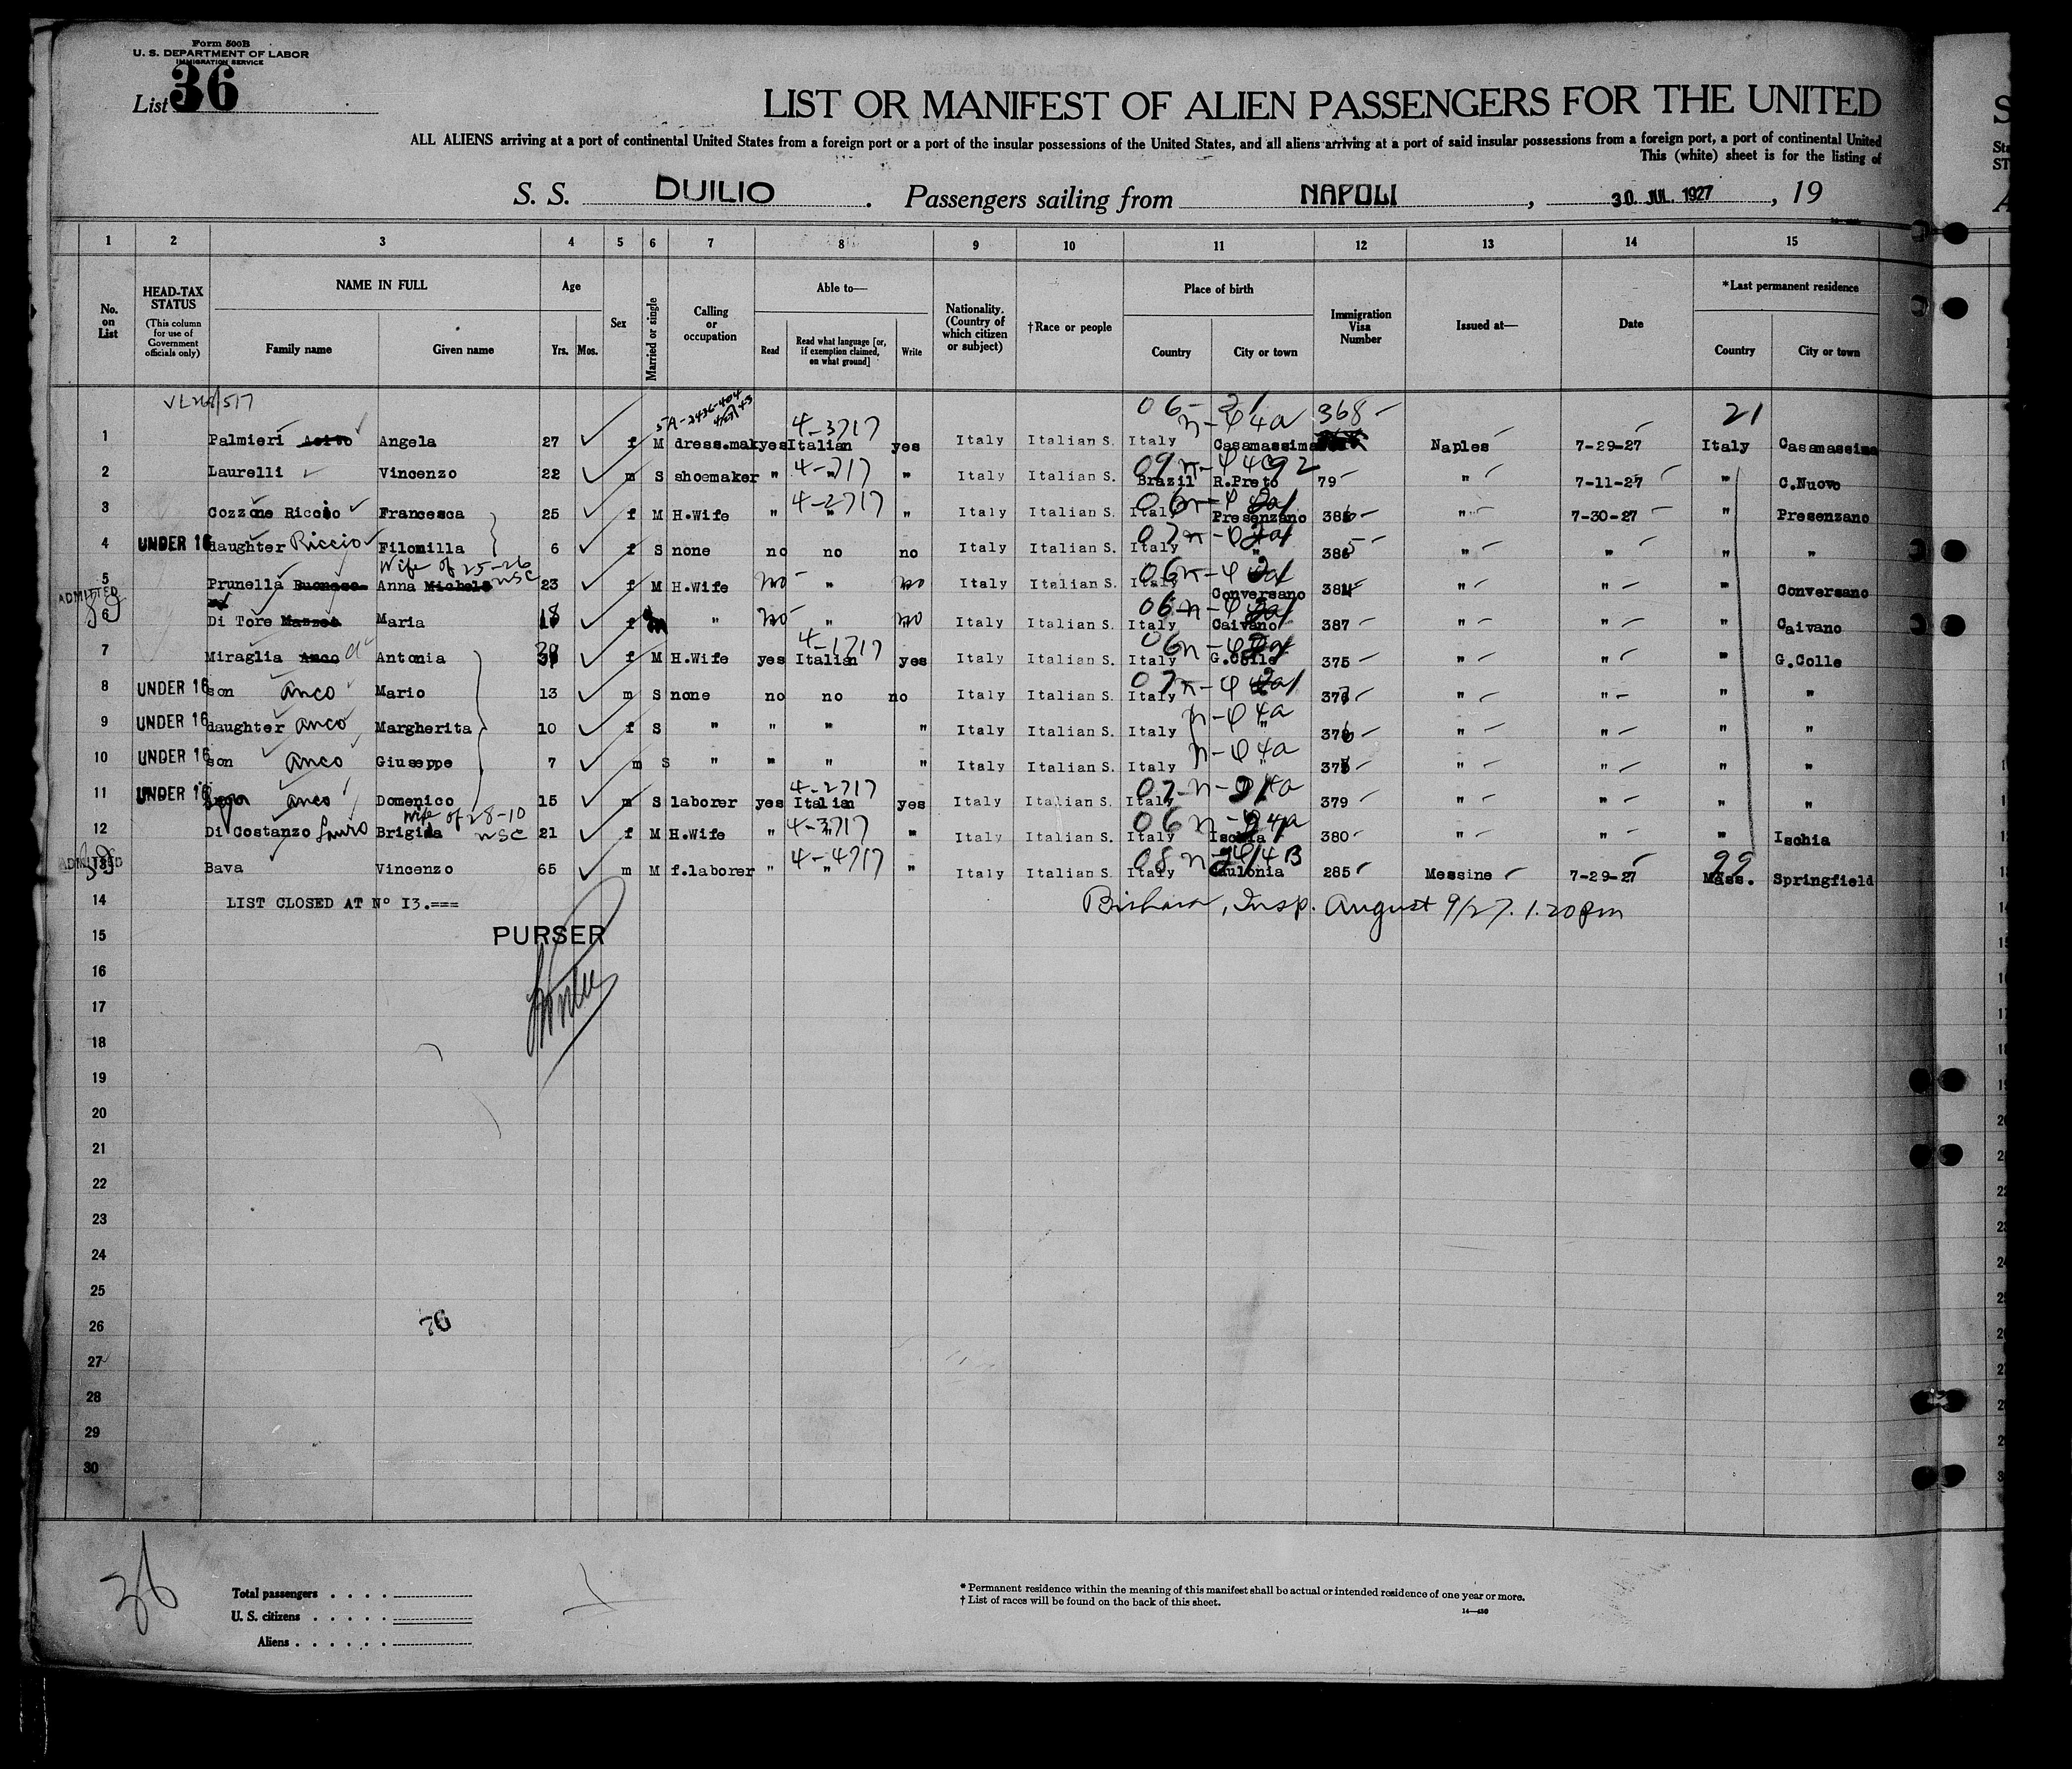 Form 500B
U. S. DEPARTMENT OF LABOR
IMMIGRATION SERVICE
List 36
LIST OR MANIFEST OF ALIEN PASSENGERS FOR THE UNITED
ALL ALIENS arriving at a port of continental United States from a foreign port or a port of the insular possessions of the United States, and all aliens arriving at a port of said insular possessions from a foreign port, a port of continental United
This (white) sheet is for the listing of
S. S. DUILIO. Passengers sailing from NAPOLI, 30 JUL. 1927, 19
1 2 3 4 5 6 7 8 9 10 11 12 13 14 15
No. on List
HEAD-TAX STATUS
(This column for use of Government officials only)
NAME IN FULL
Family name Given name
Age
Yrs. Mos.
Sex
Married or single
Calling or occupation
Able to—
Read
Read what language [or, if exemption claimed, on what ground]
Write
Nationality. (Country of which citizen or subject)
†Race or people
Place of birth
Country City or town
Immigration Visa Number
Issued at—
Date
*Last permanent residence
Country City or town
06- 21 368- 21
4-3717 n-φ4a
1 Palmieri Angela 27 f M dress.mak yes Italian yes Italy Italian S. Italy Casamassima Naples 7-29-27 Italy Casamassima
4-717
2 Laurelli Vincenzo 22 m S shoemaker " " " Italy Italian S. Brazil R.Preto 79 " 7-11-27 " C.Nuovo
4-2717
3 Cozzone Riccio Francesca 25 f M H.Wife " " " Italy Italian S. Italy Presenzano " 7-30-27 " Presenzano
4 UNDER 16 daughter Riccio Filomilla 6 f S none no no no Italy Italian S. Italy " " " " "
Wife of 25-26 NSC
5 Prunella Buonoso Anna Michele 23 f M H.Wife no " no Italy Italian S. Italy Conversano 384 " " " Conversano
ADMITTED
6 Di Tore Mazzeo Maria 18 f " no " no Italy Italian S. Italy Caivano 387 " " " Caivano
4-1717
7 Miraglia Anco Antonia f M H.Wife yes Italian yes Italy Italian S. Italy G.Colle 375 " " " G.Colle
8 UNDER 16 son Anco Mario 13 m S none no no no Italy Italian S. Italy " " " "
n-φ4a
9 UNDER 16 daughter Anco Margherita 10 f S " " " " Italy Italian S. Italy " " " " "
n-φ4a
10 UNDER 16 son Anco Giuseppe 7 m S " " " " Italy Italian S. Italy " " " " "
4-2717
11 UNDER 16 Anco Domenico 15 m S laborer yes Italian yes Italy Italian S. Italy 379 " " " "
Wife of 28-10 NSC 4-3717
12 Di Costanzo Lauro Brigida 21 f M H.Wife " " " Italy Italian S. Italy Ischia 380 " " " Ischia
ADMITTED 4-4717 99
13 Bava Vincenzo 65 m M f.laborer " " " Italy Italian S. Italy Caulonia 285 Messine 7-29-27 Mass. Springfield
14 LIST CLOSED AT N° 13.=== Insp. August 9/27. 1.20pm
15 PURSER
16
17
18
19
20
21
22
23
24
25
26 76
27
28
29
30
36
Total passengers
U. S. citizens
Aliens
* Permanent residence within the meaning of this manifest shall be actual or intended residence of one year or more.
† List of races will be found on the back of this sheet.
14—480